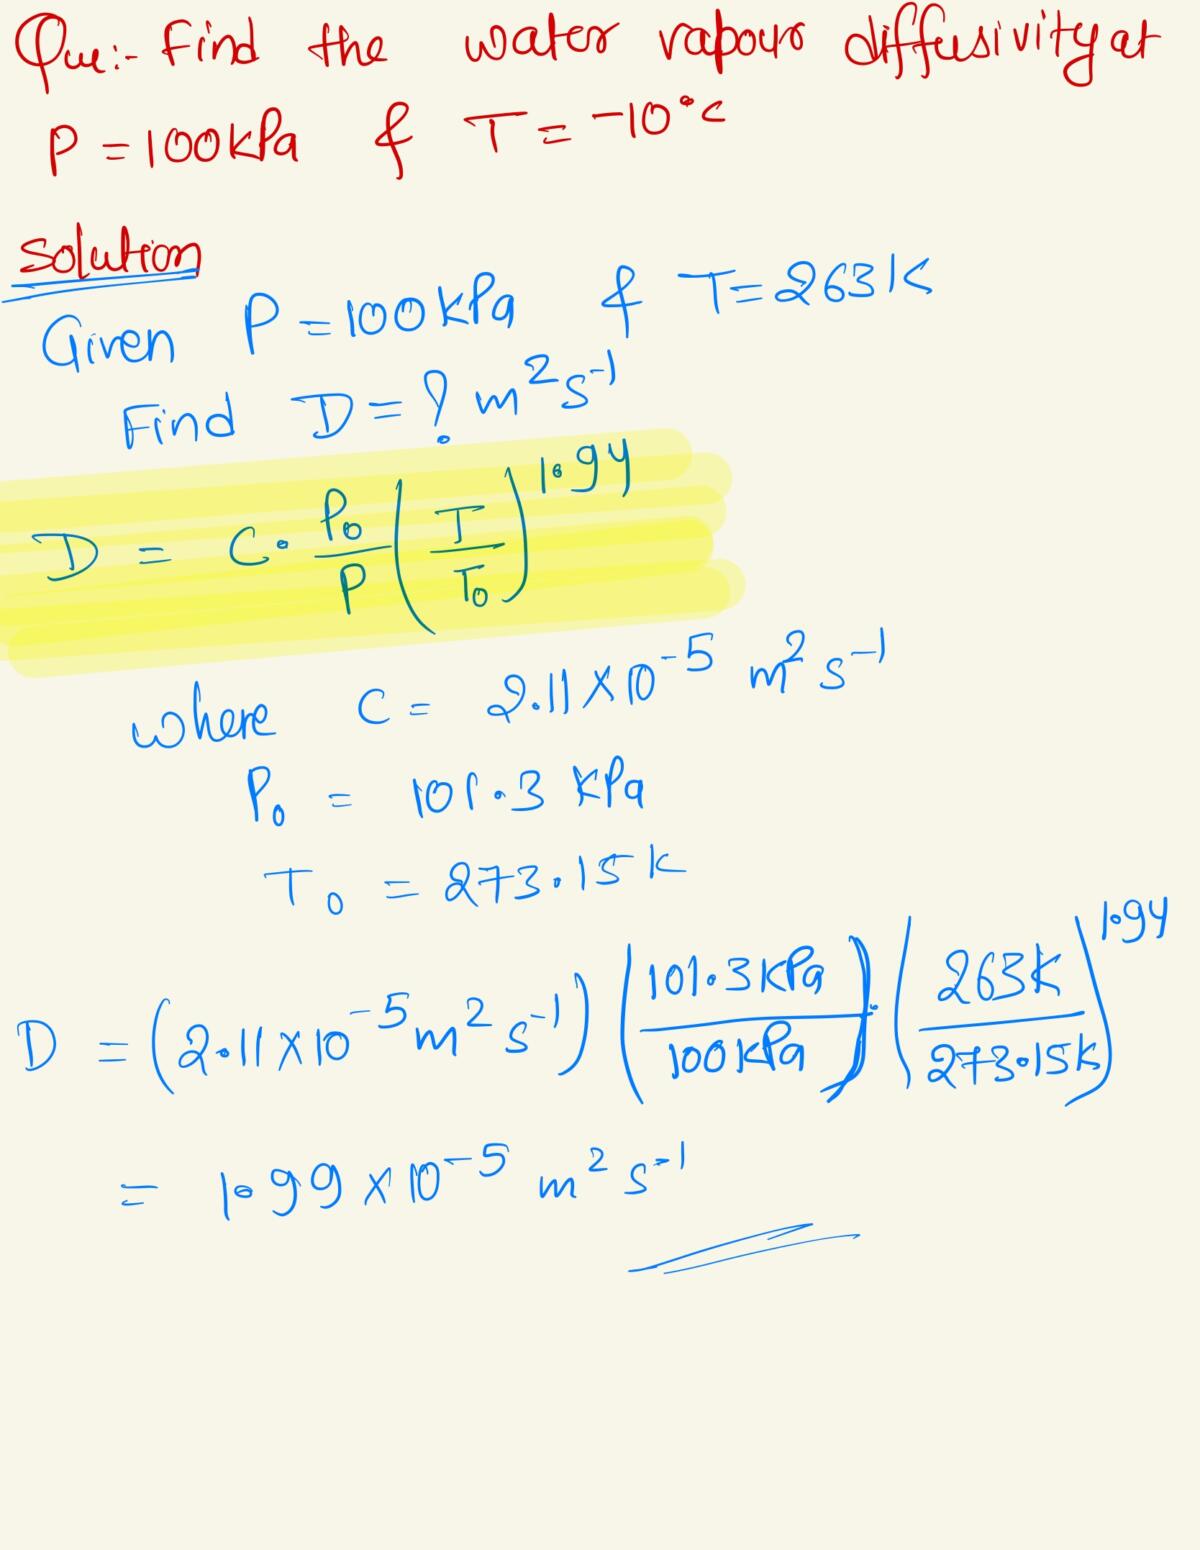 Que:- Find the water vapour diffusivity at
P = 100kPa & T = -10°C
Solution
Given P = 100kPa & T = 263K
Find D = ? m²s⁻¹
D = C · P₀/P (T/T₀)^1.94
where C = 2.11 × 10⁻⁵ m² s⁻¹
P₀ = 101.3 kPa
T₀ = 273.15K
D = (2.11 × 10⁻⁵ m² s⁻¹) (101.3kPa/100kPa) · (263K/273.15K)^1.94
= 1.99 × 10⁻⁵ m² s⁻¹